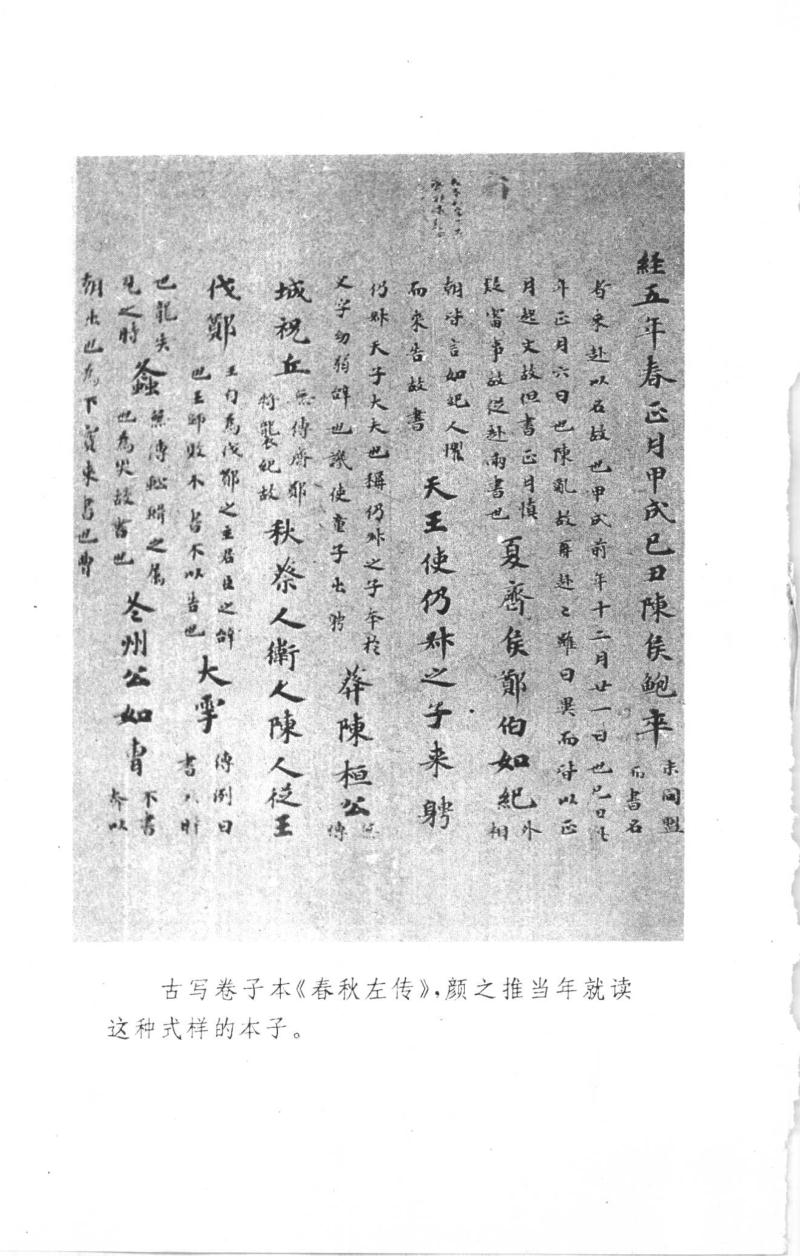 経五年春正月甲戌己丑陳侯鮑卒
未同盟
而書名
者来赴以名故也甲戌前年十二月廿一日也己丑此
年正月六日也陳乱故再赴〻雖日異而皆以正
月起文故但書正月慎
疑審事故従赴兩書也
夏齊侯鄭伯如紀
外
相
朝皆言如紀人懼
而来告故書
天王使仍叔之子来聘
仍叔天子大夫也稱仍叔之子本於
父字幼弱辞也譏使童子出聘
葬陳桓公
無
傳
城祝丘
無傳齊鄭
将襲紀故
秋蔡人衛人陳人従王
伐鄭
王自為伐鄭之主君臣之辞
也王師敗不書不以告也
大雩
傳例曰
書不時
也龍失
見之時
螽
無傳蚣蝑之属
也為灾故書也
冬州公如曹
不書
奔以
朝出也為下寔来書也曹
古写卷子本《春秋左传》，颜之推当年就读
这种式样的本子。